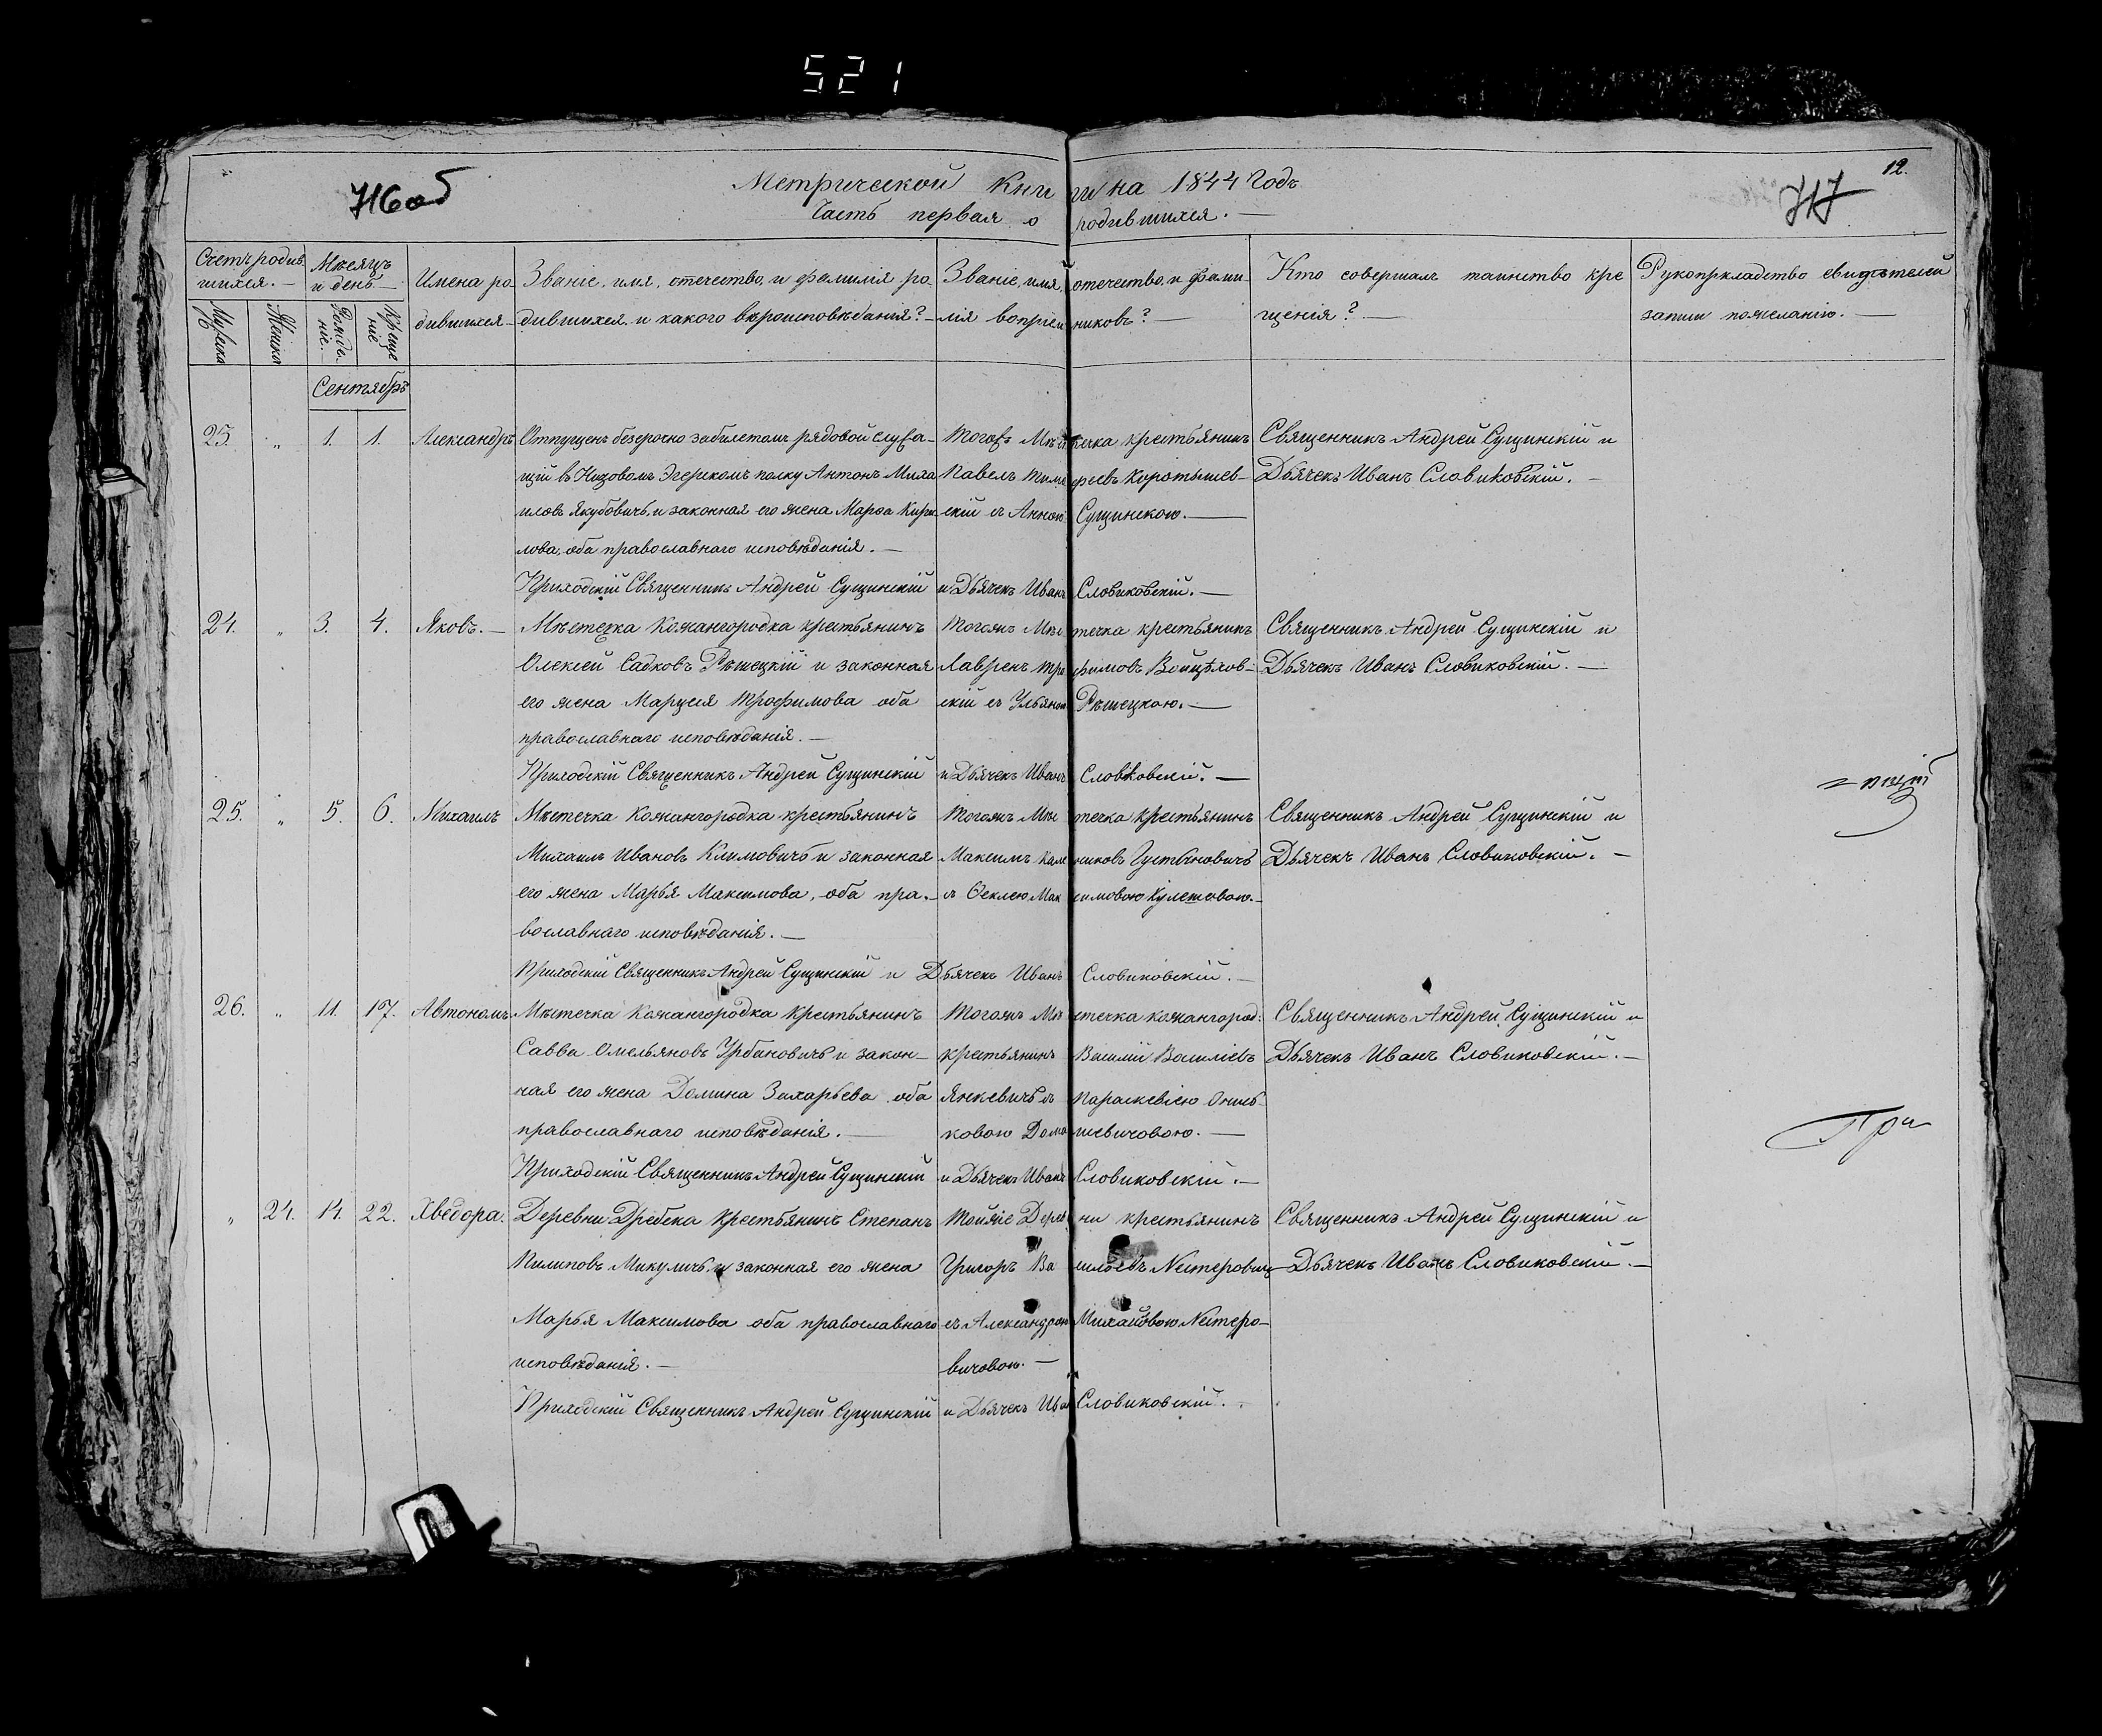 521
716 об
717
12.
Метрической книги на 1844 Годъ
Часть первая о родившихся. —
Счетъ родив-
шихся. —
Мѣсяцъ
и день —
Имена ро-
дившихся —
Званіе, имя, отечество, и фамилія ро-
дившихся. и какого вѣроисповѣданія? —
Званіе, имя, отечество, и фами-
лія вопріемниковъ? —
Кто совершалъ таинство кре
щенія? —
Рукоприкладство свидѣтелей
записи пожеланію. —
Мужска
Женска
Рожде-
ніе.
Креще
ніе
Сентябрь
25. „ 1. 1. Александръ
Отпущенъ безсрочно забилетомъ рядовой служа-
щій въ Низовомъ Эгерскомъ полку Антонъ Миха
иловъ Якубовичъ, и законная его жена Марѳа Кири-
лова, оба православнаго исповѣданія. —
Тогожъ Мѣстечка крестьянинъ
Павелъ Тимофѣевъ Коротышев-
скій съ Анною Сущинскою. —
Священникъ Андрей Сущинскій и
Дьячекъ Иванъ Словиковскій. —
Приходскій Священникъ Андрей Сущинскій и Дьячекъ Иванъ Словиковскій. —
24. „ 3. 4. Яковъ. —
Мѣстечка Кожангородка крестьянинъ
Олексей Садковъ Рѣшецкій и законная
его жена Марцеся Трофимова оба
православнаго исповѣданія. —
Тогожъ Мѣстечка крестьянинъ
Лавренъ Трофимовъ Войцѣхов-
скій съ Ульяною Рѣшецкою. —
Священникъ Андрей Сущинскій и
Дьячекъ Иванъ Словиковскій. —
Приходскій Священникъ Андрей Сущинскій и Дьячекъ Иванъ Словиковскій. —
25. „ 5. 6. Михаилъ
Мѣстечка Кожангородка крестьянинъ
Михаилъ Ивановъ Климовичъ и законная
его жена Марья Максимова, оба пра-
вославнаго исповѣданія. —
Тогожъ Мѣстечка крестьянинъ
Максимъ Густыновичъ
съ Ѳеклею Максимовою Кулешовою. —
Священникъ Андрей Сущинскій и
Дьячекъ Иванъ Словиковскій. —
Приходскій Священникъ Андрей Сущинскій и Дьячекъ Иванъ Словиковскій. —
26. „ 11. 17. Автономъ.
Мѣстечка Кожангородка крестьянинъ
Савва Омельяновъ Урбановичъ и закон-
ная его жена Домина Захарьева оба
православнаго исповѣданія. —
Тогожъ Мѣстечка кожангород:
крестьянинъ Василій Василіевъ
Янкевичъ съ Параскевіею
Домашевичовою. —
Священникъ Андрей Сущинскій и
Дьячекъ Иванъ Словиковскій. —
Приходскій Священникъ Андрей Сущинскій и Дьячекъ Иванъ Словиковскій. —
При
„ 24. 14. 22. Хведора.
Деревни Дребска крестьянинъ Степанъ
Пилиповъ Микуличъ, и законная его жена
Марья Максимова оба православнаго
исповѣданія. —
Тойже Деревни крестьянинъ
Григоръ Васильевъ Нестеровичъ
съ Александрою Михайловою Нестеро-
вичовою. —
Священникъ Андрей Сущинскій и
Дьячекъ Иванъ Словиковскій. —
Приходскій Священникъ Андрей Сущинскій и Дьячекъ Иванъ Словиковскій.